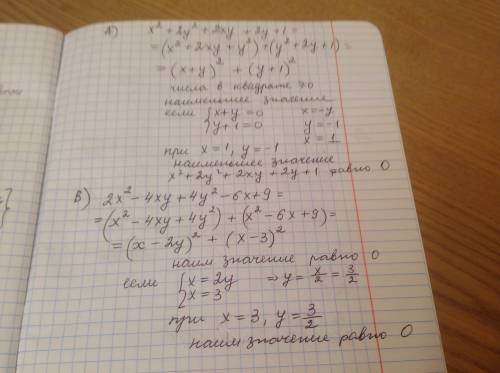 А) x² + 2y² + 2xy + 2y + 1 =
= (x² + 2xy + y²) + (y² + 2y + 1) =
= (x + y)² + (y + 1)²
числа в квадрате ≥0
наименьшее значение
если { x + y = 0   x = -y
y + 1 = 0   y = -1
x = 1
при x = 1, y = -1
наименьшее значение
x² + 2y² + 2xy + 2y + 1 равно 0
В) 2x² - 4xy + 4y² - 6x + 9 =
= (x² - 4xy + 4y²) + (x² - 6x + 9) =
= (x - 2y)² + (x - 3)²
наим значение равно 0
если { x = 2y   ⇒ y = x/2 = 3/2
x = 3
при x = 3, y = 3/2
наим значение равно 0